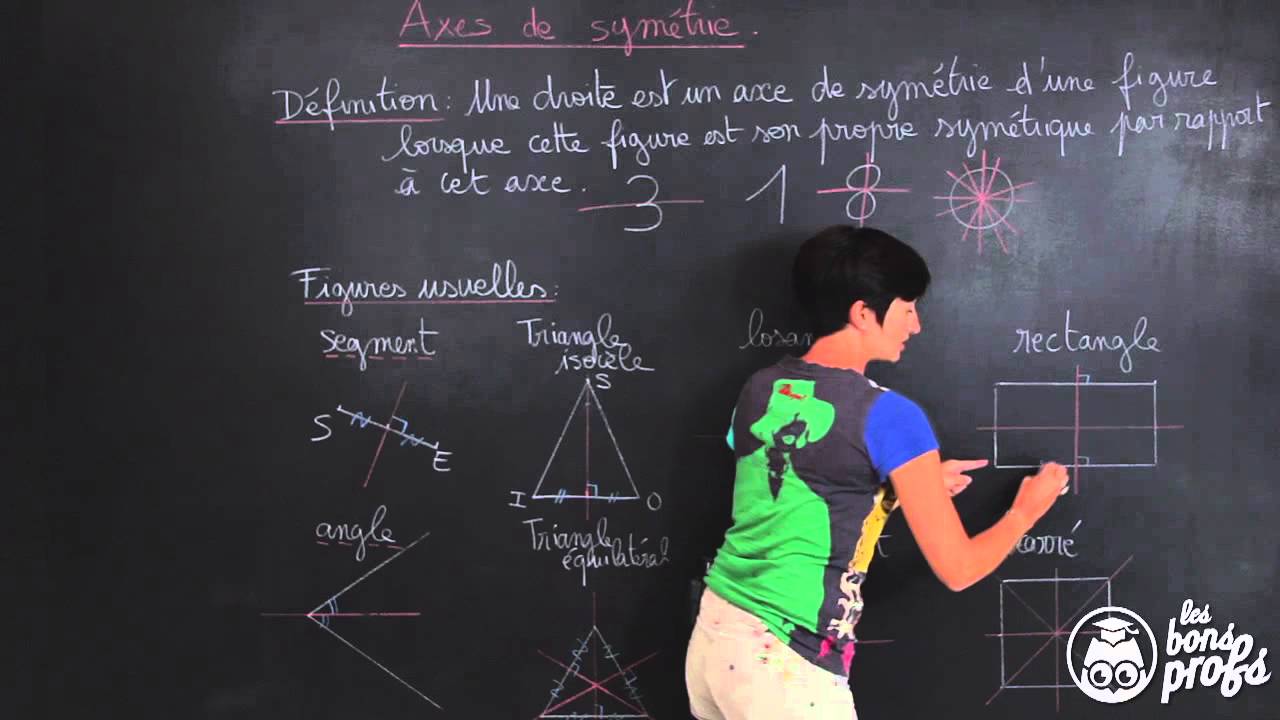 Axes de symétrie.
Définition : Une droite est un axe de symétrie d'une figure
lorsque cette figure est son propre symétrique par rapport
à cet axe.
3 1 8
Figures usuelles :
segment
Triangle
isocèle
rectangle
S
E
S
I
O
angle
Triangle
équilatéral
les
bons
profs